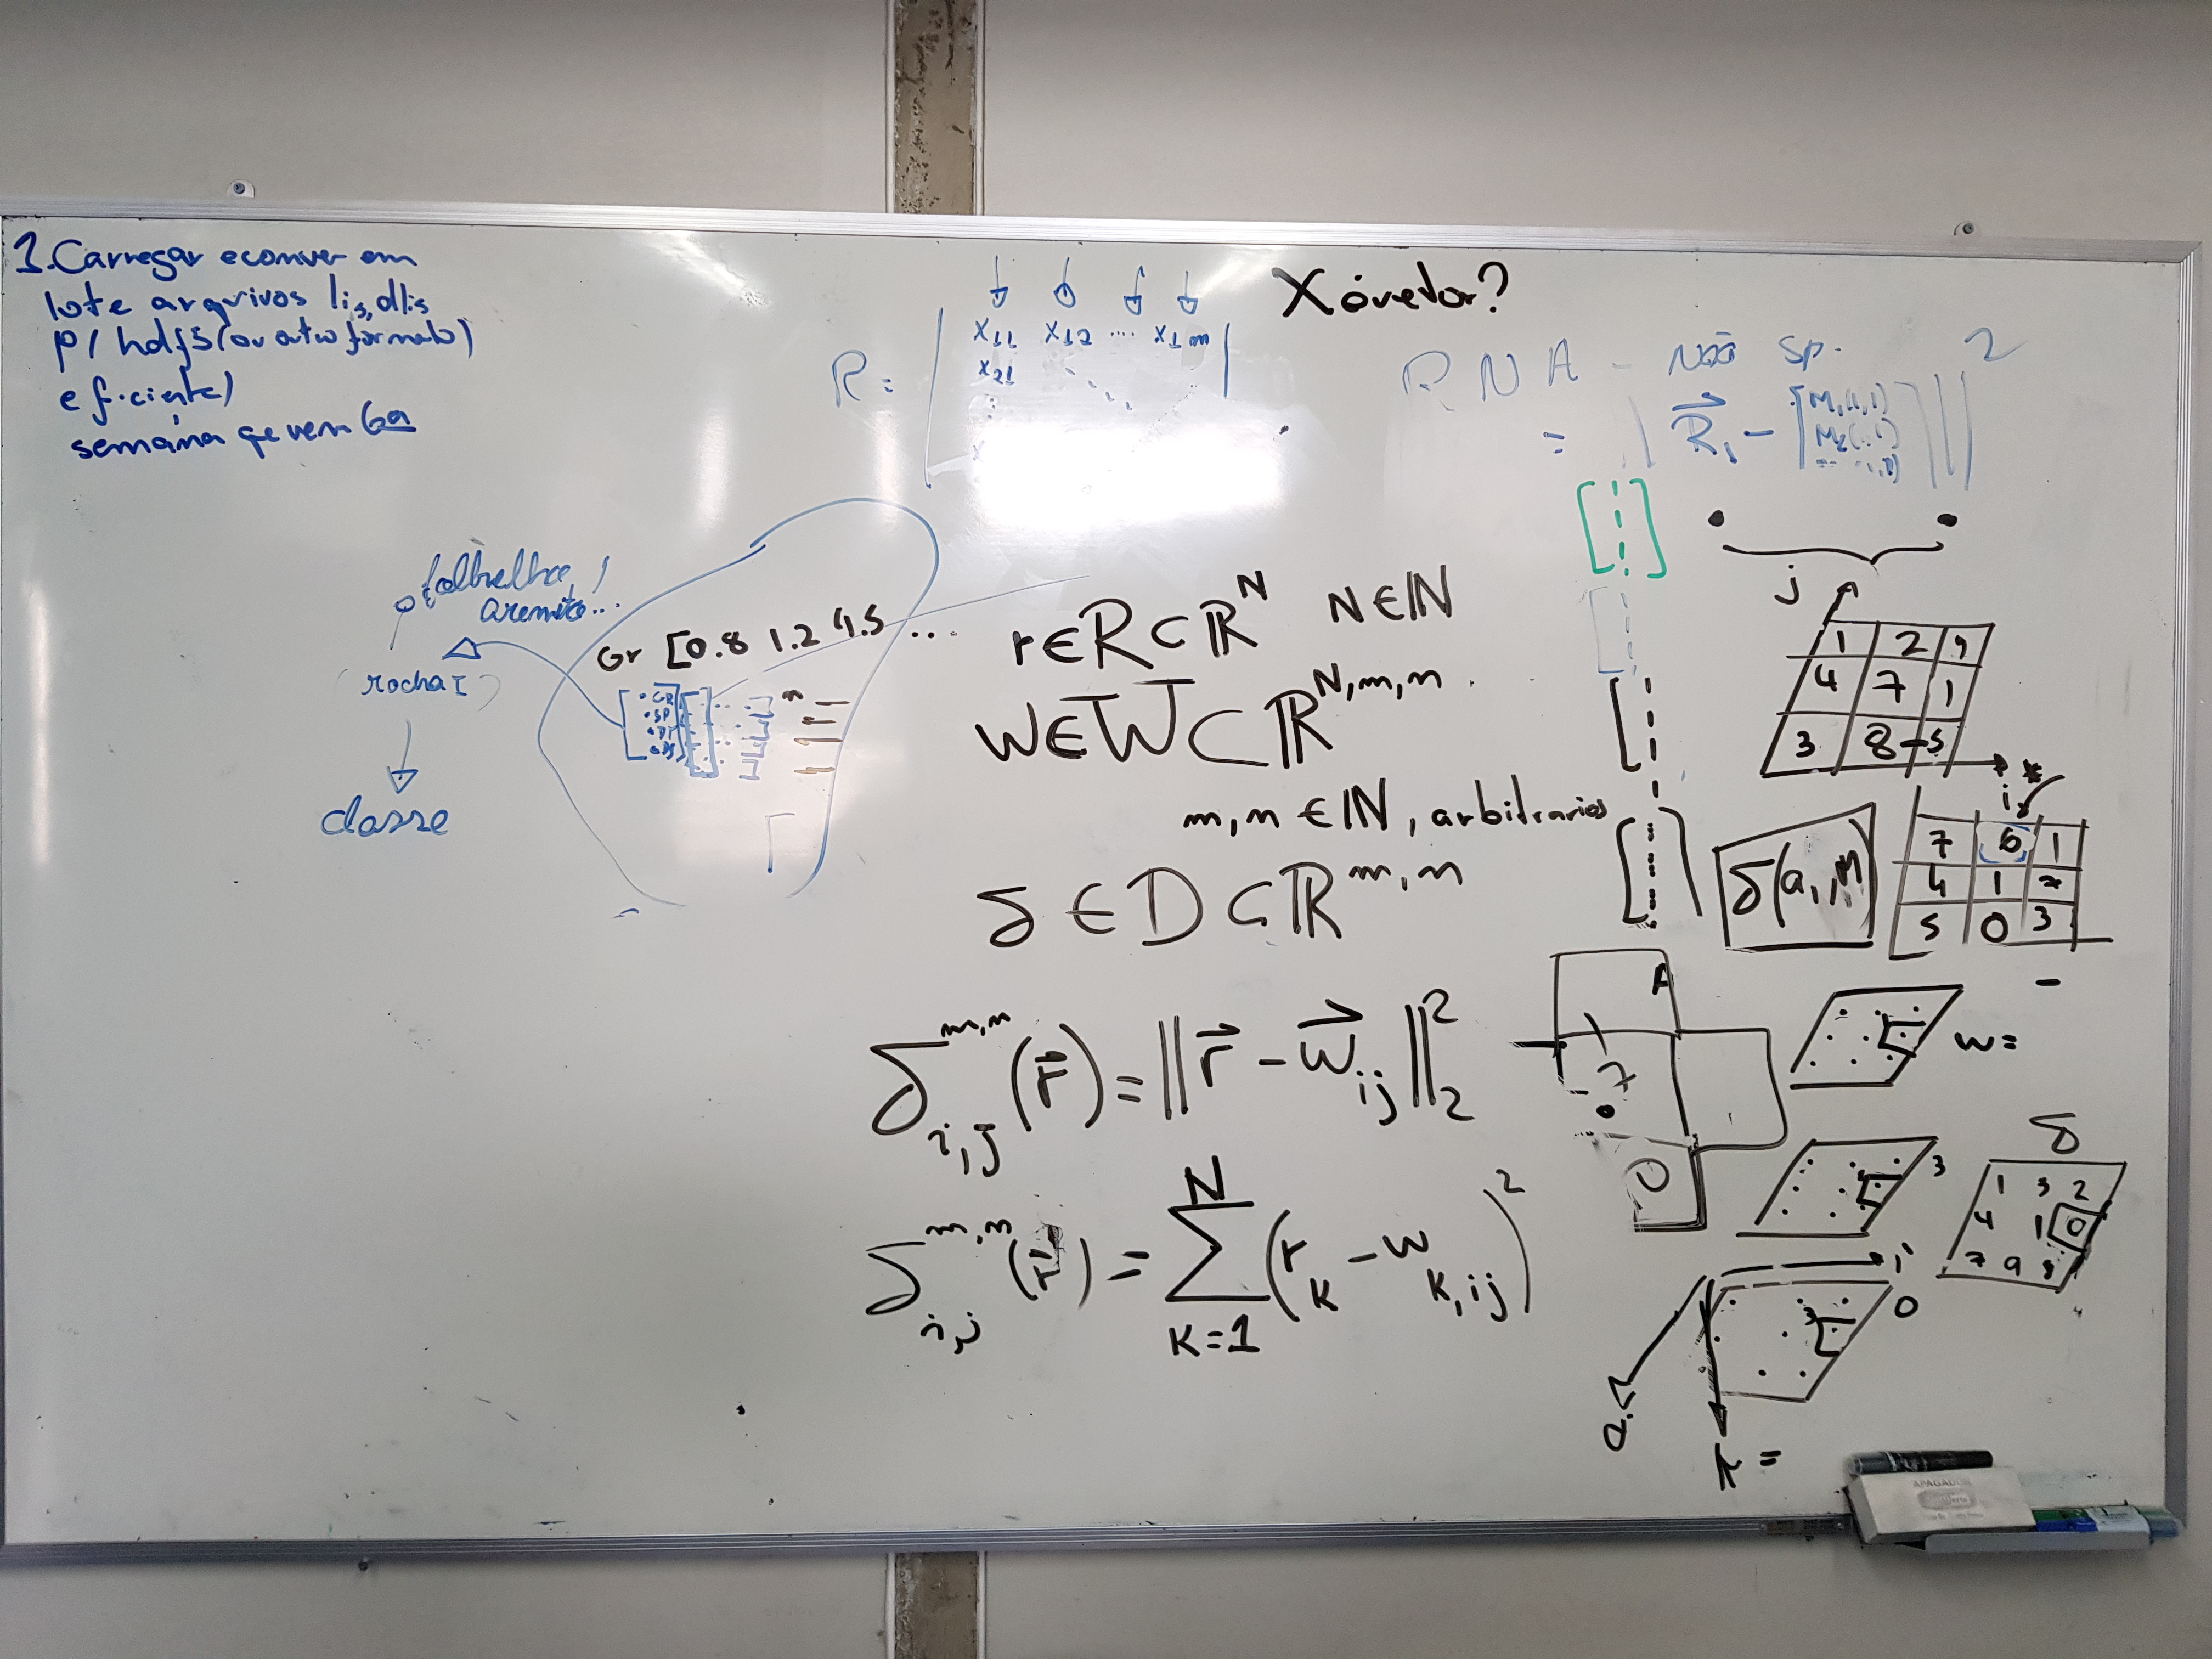 1. Carregar e conver em
lote arquivos lis, dlis
p/ hdf5 (ou outro formato)
eficiente)
semana que vem 6a
X é vetor?
R =
x11 x12 .... x1m
x21
RNA - Não sp.
= | R⃗1 - [ ] ||²
folhelho,
arenito...
rocha I
classe
Gr [0.8 1.2 4.5 ...
GR
SP
DT
n
r ∈ R ⊂ ℝ^N N ∈ ℕ
w ∈ W ⊂ ℝ^N,m,n
m,n ∈ ℕ, arbitrarios
δ ∈ D ⊂ ℝ^m,n
δ_i,j^m,n (r⃗) = || r⃗ - w⃗_ij ||_2^2
δ_i,j^m,n (r⃗) = Σ_K=1^N (r_K - w_K,ij)^2
j
1 2 9
4 7 1
3 8 5
i
7 6 1
4 1 2
5 0 3
A
7
0
w =
3
δ
1 3 2
4 1 0
7 9 8
i
0
k =
APAGADOR